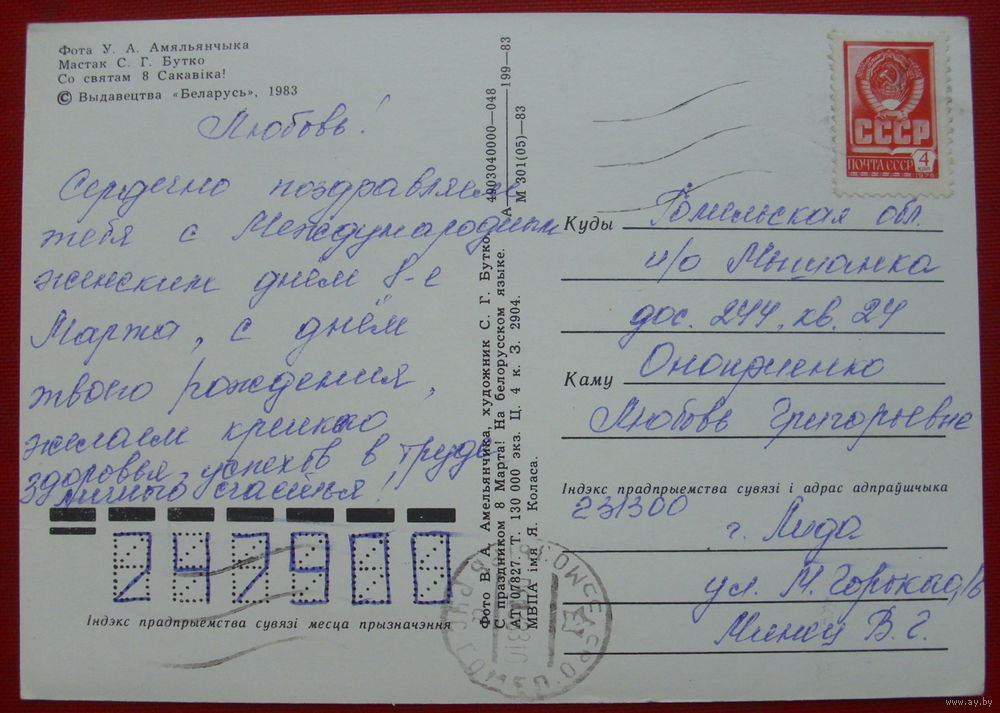 Фота У. А. Амяльянчыка
Мастак С. Г. Бутко
Со святам 8 Сакавіка!
© Выдавецтва «Беларусь», 1983
Любовь!
Сердечно поздравляем
тебя с Международным
женским днём 8-е
Марта, с днём
твоего рождения,
желаем крепкого
здоровья, успехов в труде
личного счастья!
247900
Індэкс прадпрыемства сувязі месца прызначэння
Фото В. А. Амельянчика, художник С. Г. Бутко. 4903040000—048
С праздником 8 Марта! На белорусском языке. А 199—83
АТ 07827. Т. 130 000 экз. Ц. 4 к. З. 2904. М 301(05)—83
МВПА імя Я. Коласа.
СССР
ПОЧТА СССР
4
КОП
1976
Куды Гомельская обл.
п/о Мышанка
дос. 244, кв. 24
Каму Оноприенко
Любовь Григорьевне
Індэкс прадпрыемства сувязі і адрас адпраўшчыка
231300
г. Лида
ул. М. Горького,
В. Г.